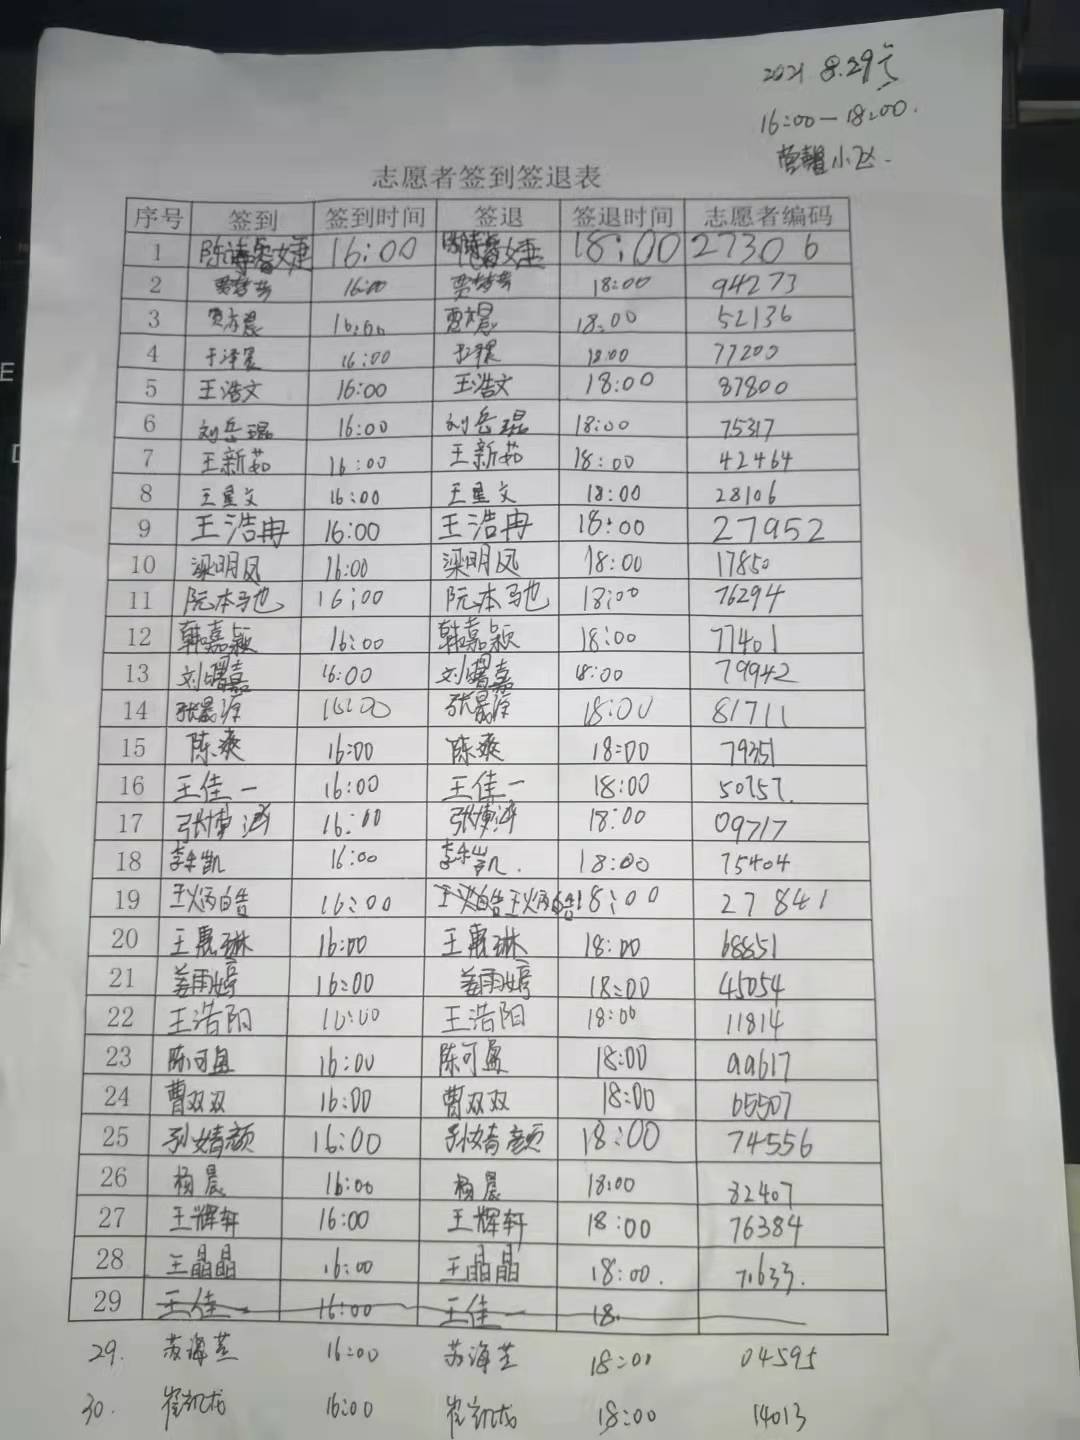 2021 8.29
16:00—18:00.
小
志愿者签到签退表
序号 签到 签到时间 签退 签退时间 志愿者编码
1 陈 婕 16:00 婕 18:00 27306
2 贾梦芸 16:00 贾梦芸 18:00 94273
3 贾 晨 16:00 贾 晨 18:00 52136
4 于泽晨 16:00 18:00 77200
5 王浩文 16:00 王浩文 18:00 87800
6 刘岳琨 16:00 刘岳琨 18:00 75317
7 王新茹 16:00 王新茹 18:00 42464
8 王星文 16:00 王星文 18:00 28106
9 王浩冉 16:00 王浩冉 18:00 27952
10 梁明凤 16:00 梁明凤 18:00 17850
11 阮本驰 16:00 阮本驰 18:00 76294
12 韩嘉颖 16:00 韩嘉颖 18:00 77401
13 刘曙嘉 16:00 刘曙嘉 18:00 79942
14 张晟源 16:00 张晟源 18:00 81711
15 陈爽 16:00 陈爽 18:00 79351
16 王佳一 16:00 王佳一 18:00 50757.
17 张博涵 16:00 张博涵 18:00 09717
18 李 凯 16:00 李 凯. 18:00 75404
19 王炳皓 16:00 王炳皓 18:00 27841
20 王惠琳 16:00 王惠琳 18:00 68851
21 姜雨婷 16:00 姜雨婷 18:00 45054
22 王浩阳 16:00 王浩阳 18:00 11814
23 陈可盈 16:00 陈可盈 18:00 99617
24 曹双双 16:00 曹双双 18:00 65507
25 孙婧颜 16:00 孙婧颜 18:00 74556
26 杨晨 16:00 杨晨 18:00 32407
27 王辉轩 16:00 王辉轩 18:00 76384
28 王晶晶 16:00 王晶晶 18:00. 71633.
29 王佳一 16:00 王佳一 18.
29. 苏海芝 16:00 苏海芝 18:00 04595
30. 崔凯龙 16:00 崔凯龙 18:00 14013